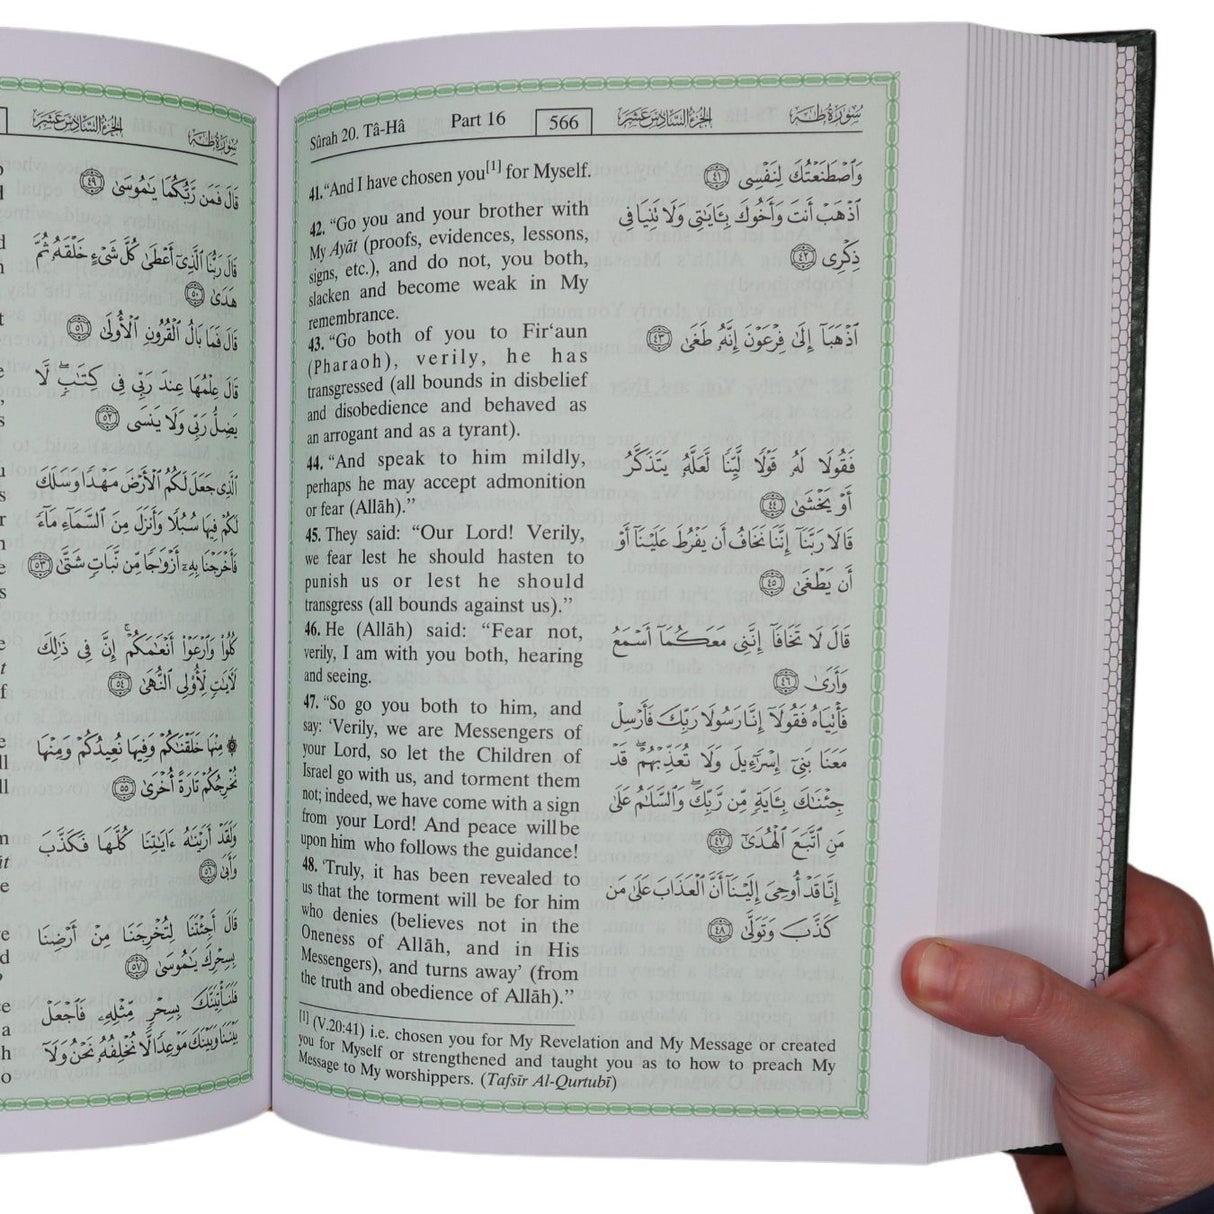 Sûrah 20. Tâ-Hâ Part 16 566 الجزء السادس عشر سورة طه
41. “And I have chosen you[1] for Myself.
42. “Go you and your brother with
My Ayât (proofs, evidences, lessons,
signs, etc.), and do not, you both,
slacken and become weak in My
remembrance.
43. “Go both of you to Fir‘aun
(Pharaoh), verily, he has
transgressed (all bounds in disbelief
and disobedience and behaved as
an arrogant and as a tyrant).
44. “And speak to him mildly,
perhaps he may accept admonition
or fear (Allâh).”
45. They said: “Our Lord! Verily,
we fear lest he should hasten to
punish us or lest he should
transgress (all bounds against us).”
46. He (Allâh) said: “Fear not,
verily, I am with you both, hearing
and seeing.
47. “So go you both to him, and
say: ‘Verily, we are Messengers of
your Lord, so let the Children of
Israel go with us, and torment them
not; indeed, we have come with a sign
from your Lord! And peace will be
upon him who follows the guidance!
48. ‘Truly, it has been revealed to
us that the torment will be for him
who denies (believes not in the
Oneness of Allâh, and in His
Messengers), and turns away’ (from
the truth and obedience of Allâh).”
وَٱصْطَنَعْتُكَ لِنَفْسِى ٤١
ٱذْهَبْ أَنتَ وَأَخُوكَ بِـَٔايَٰتِى وَلَا تَنِيَا فِى
ذِكْرِى ٤٢
ٱذْهَبَآ إِلَىٰ فِرْعَوْنَ إِنَّهُۥ طَغَىٰ ٤٣
فَقُولَا لَهُۥ قَوْلًا لَّيِّنًا لَّعَلَّهُۥ يَتَذَكَّرُ
أَوْ يَخْشَىٰ ٤٤
قَالَا رَبَّنَآ إِنَّنَا نَخَافُ أَن يَفْرُطَ عَلَيْنَآ أَوْ
أَن يَطْغَىٰ ٤٥
قَالَ لَا تَخَافَآ إِنَّنِى مَعَكُمَآ أَسْمَعُ
وَأَرَىٰ ٤٦
فَأْتِيَاهُ فَقُولَآ إِنَّا رَسُولَا رَبِّكَ فَأَرْسِلْ
مَعَنَا بَنِىٓ إِسْرَٰٓءِيلَ وَلَا تُعَذِّبْهُمْ ۖ قَدْ
جِئْنَٰكَ بِـَٔايَةٍ مِّن رَّبِّكَ ۖ وَٱلسَّلَٰمُ عَلَىٰ
مَنِ ٱتَّبَعَ ٱلْهُدَىٰٓ ٤٧
إِنَّا قَدْ أُوحِىَ إِلَيْنَآ أَنَّ ٱلْعَذَابَ عَلَىٰ مَن
كَذَّبَ وَتَوَلَّىٰ ٤٨
[1] (V.20:41) i.e. chosen you for My Revelation and My Message or created
you for Myself or strengthened and taught you as to how to preach My
Message to My worshippers. (Tafsîr Al-Qurtubî)
الجزء السادس عشر سورة طه
قَالَ فَمَن رَّبُّكُمَا يَٰمُوسَىٰ ٤٩
قَالَ رَبُّنَا ٱلَّذِىٓ أَعْطَىٰ كُلَّ شَىْءٍ خَلْقَهُۥ ثُمَّ
هَدَىٰ ٥٠
قَالَ فَمَا بَالُ ٱلْقُرُونِ ٱلْأُولَىٰ ٥١
قَالَ عِلْمُهَا عِندَ رَبِّى فِى كِتَٰبٍ ۖ لَّا
يَضِلُّ رَبِّى وَلَا يَنسَى ٥٢
ٱلَّذِى جَعَلَ لَكُمُ ٱلْأَرْضَ مَهْدًا وَسَلَكَ
لَكُمْ فِيهَا سُبُلًا وَأَنزَلَ مِنَ ٱلسَّمَآءِ مَآءً
فَأَخْرَجْنَا بِهِۦٓ أَزْوَٰجًا مِّن نَّبَاتٍ شَتَّىٰ ٥٣
كُلُوا۟ وَٱرْعَوْا۟ أَنْعَٰمَكُمْ ۗ إِنَّ فِى ذَٰلِكَ
لَءَايَٰتٍ لِّأُو۟لِى ٱلنُّهَىٰ ٥٤
۞ مِنْهَا خَلَقْنَٰكُمْ وَفِيهَا نُعِيدُكُمْ وَمِنْهَا
نُخْرِجُكُمْ تَارَةً أُخْرَىٰ ٥٥
وَلَقَدْ أَرَيْنَٰهُ ءَايَٰتِنَا كُلَّهَا فَكَذَّبَ
وَأَبَىٰ ٥٦
قَالَ أَجِئْتَنَا لِتُخْرِجَنَا مِنْ أَرْضِنَا
بِسِحْرِكَ يَٰمُوسَىٰ ٥٧
فَلَنَأْتِيَنَّكَ بِسِحْرٍ مِّثْلِهِۦ فَٱجْعَلْ
بَيْنَنَا وَبَيْنَكَ مَوْعِدًا لَّا نُخْلِفُهُۥ نَحْنُ وَلَآ